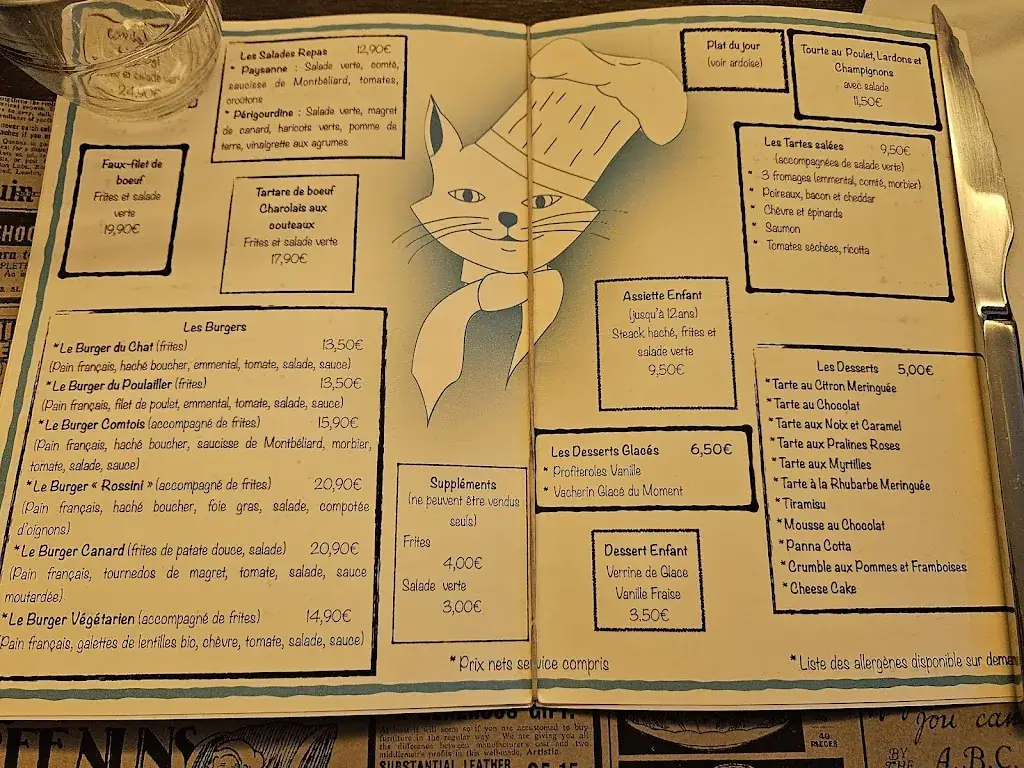 Les Salades Repas 12,90€
* Paysanne : Salade verte, comté,
saucisse de Montbéliard, tomates,
croûtons
* Périgourdine : Salade verte, magret
de canard, haricots verts, pomme de
terre, vinaigrette aux agrumes
Faux-filet de
boeuf
Frites et salade
verte
19,90€
Tartare de boeuf
Charolais aux
couteaux
Frites et salade verte
17,90€
Les Burgers
*Le Burger du Chat (frites) 13,50€
(Pain français, haché boucher, emmental, tomate, salade, sauce)
*Le Burger du Poulailler (frites) 13,50€
(Pain français, filet de poulet, emmental, tomate, salade, sauce)
*Le Burger Comtois (accompagné de frites) 15,90€
(Pain français, haché boucher, saucisse de Montbéliard, morbier,
tomate, salade, sauce)
*Le Burger « Rossini » (accompagné de frites) 20,90€
(Pain français, haché boucher, foie gras, salade, compotée
d'oignons)
*Le Burger Canard (frites de patate douce, salade) 20,90€
(Pain français, tournedos de magret, tomate, salade, sauce
moutardée)
*Le Burger Végétarien (accompagné de frites) 14,90€
(Pain français, galettes de lentilles bio, chèvre, tomate, salade, sauce)
Suppléments
(ne peuvent être vendus
seuls)
Frites
4,00€
Salade verte
3,00€
* Prix nets service compris
Plat du jour
(voir ardoise)
Tourte au Poulet, Lardons et
Champignons
avec salade
11,50€
Les Tartes salées 9,50€
(accompagnées de salade verte)
* 3 fromages (emmental, comté, morbier)
* Poireaux, bacon et cheddar
* Chèvre et épinards
* Saumon
* Tomates séchées, ricotta
Assiette Enfant
(jusqu'à 12ans)
Steack haché, frites et
salade verte
9,50€
Les Desserts Glacés 6,50€
* Profiteroles Vanille
* Vacherin Glacé du Moment
Dessert Enfant
Verrine de Glace
Vanille Fraise
3.50€
Les Desserts 5,00€
*Tarte au Citron Meringuée
*Tarte au Chocolat
*Tarte aux Noix et Caramel
*Tarte aux Pralines Roses
*Tarte aux Myrtilles
*Tarte à la Rhubarbe Meringuée
*Tiramisu
*Mousse au Chocolat
*Panna Cotta
*Crumble aux Pommes et Framboises
*Cheese Cake
* Liste des allergènes disponible sur
SUBSTANTIAL LEATHER
40
PIECES
you can
BY
THE A.B.C.